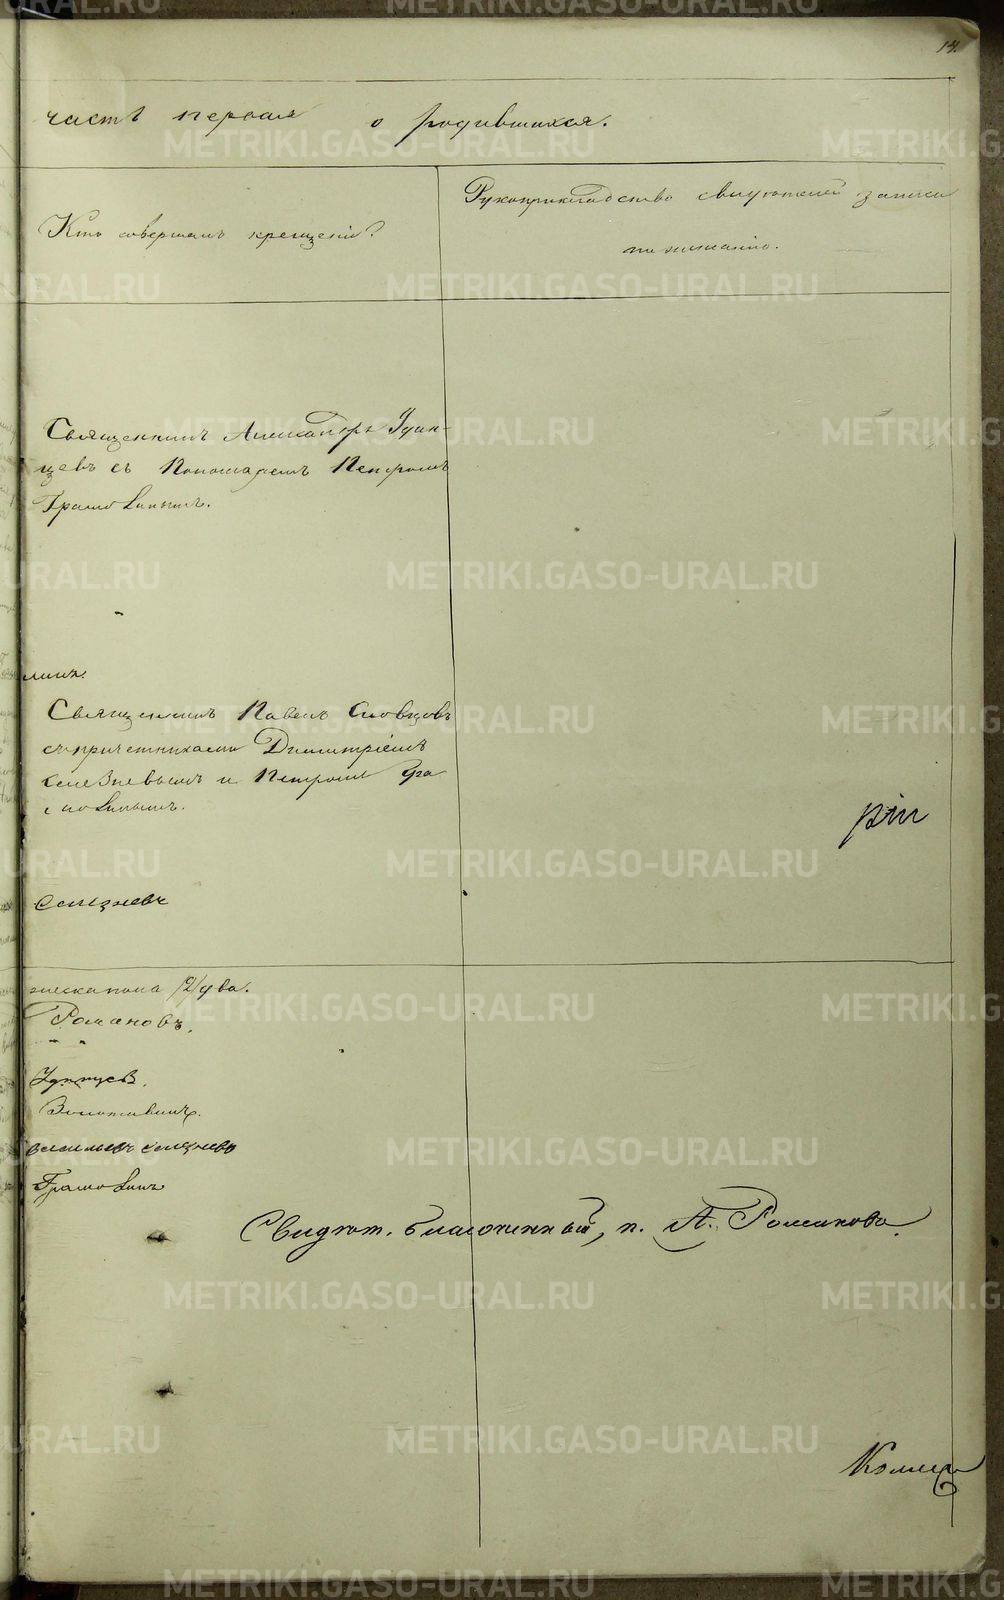 14.
часть первая о родившихся.
Кто совершалъ крещеніе?
Рукоприкладство свидѣтелей записи
по желанію.
Священникъ Александръ Удин-
цевъ съ Пономаремъ Петромъ
Грамолинымъ.
Священникъ Павелъ Словцовъ
съ причетниками Димитріемъ
Селезневымъ и Петромъ Гра
молинымъ.
рііі
Селезневъ
/2/ два.
Романовъ.
Удинцевъ.
Селезневъ
Грамолинъ
Свидѣт. благочинный, п. А. Романовъ.
METRIKI.GASO-URAL.RU